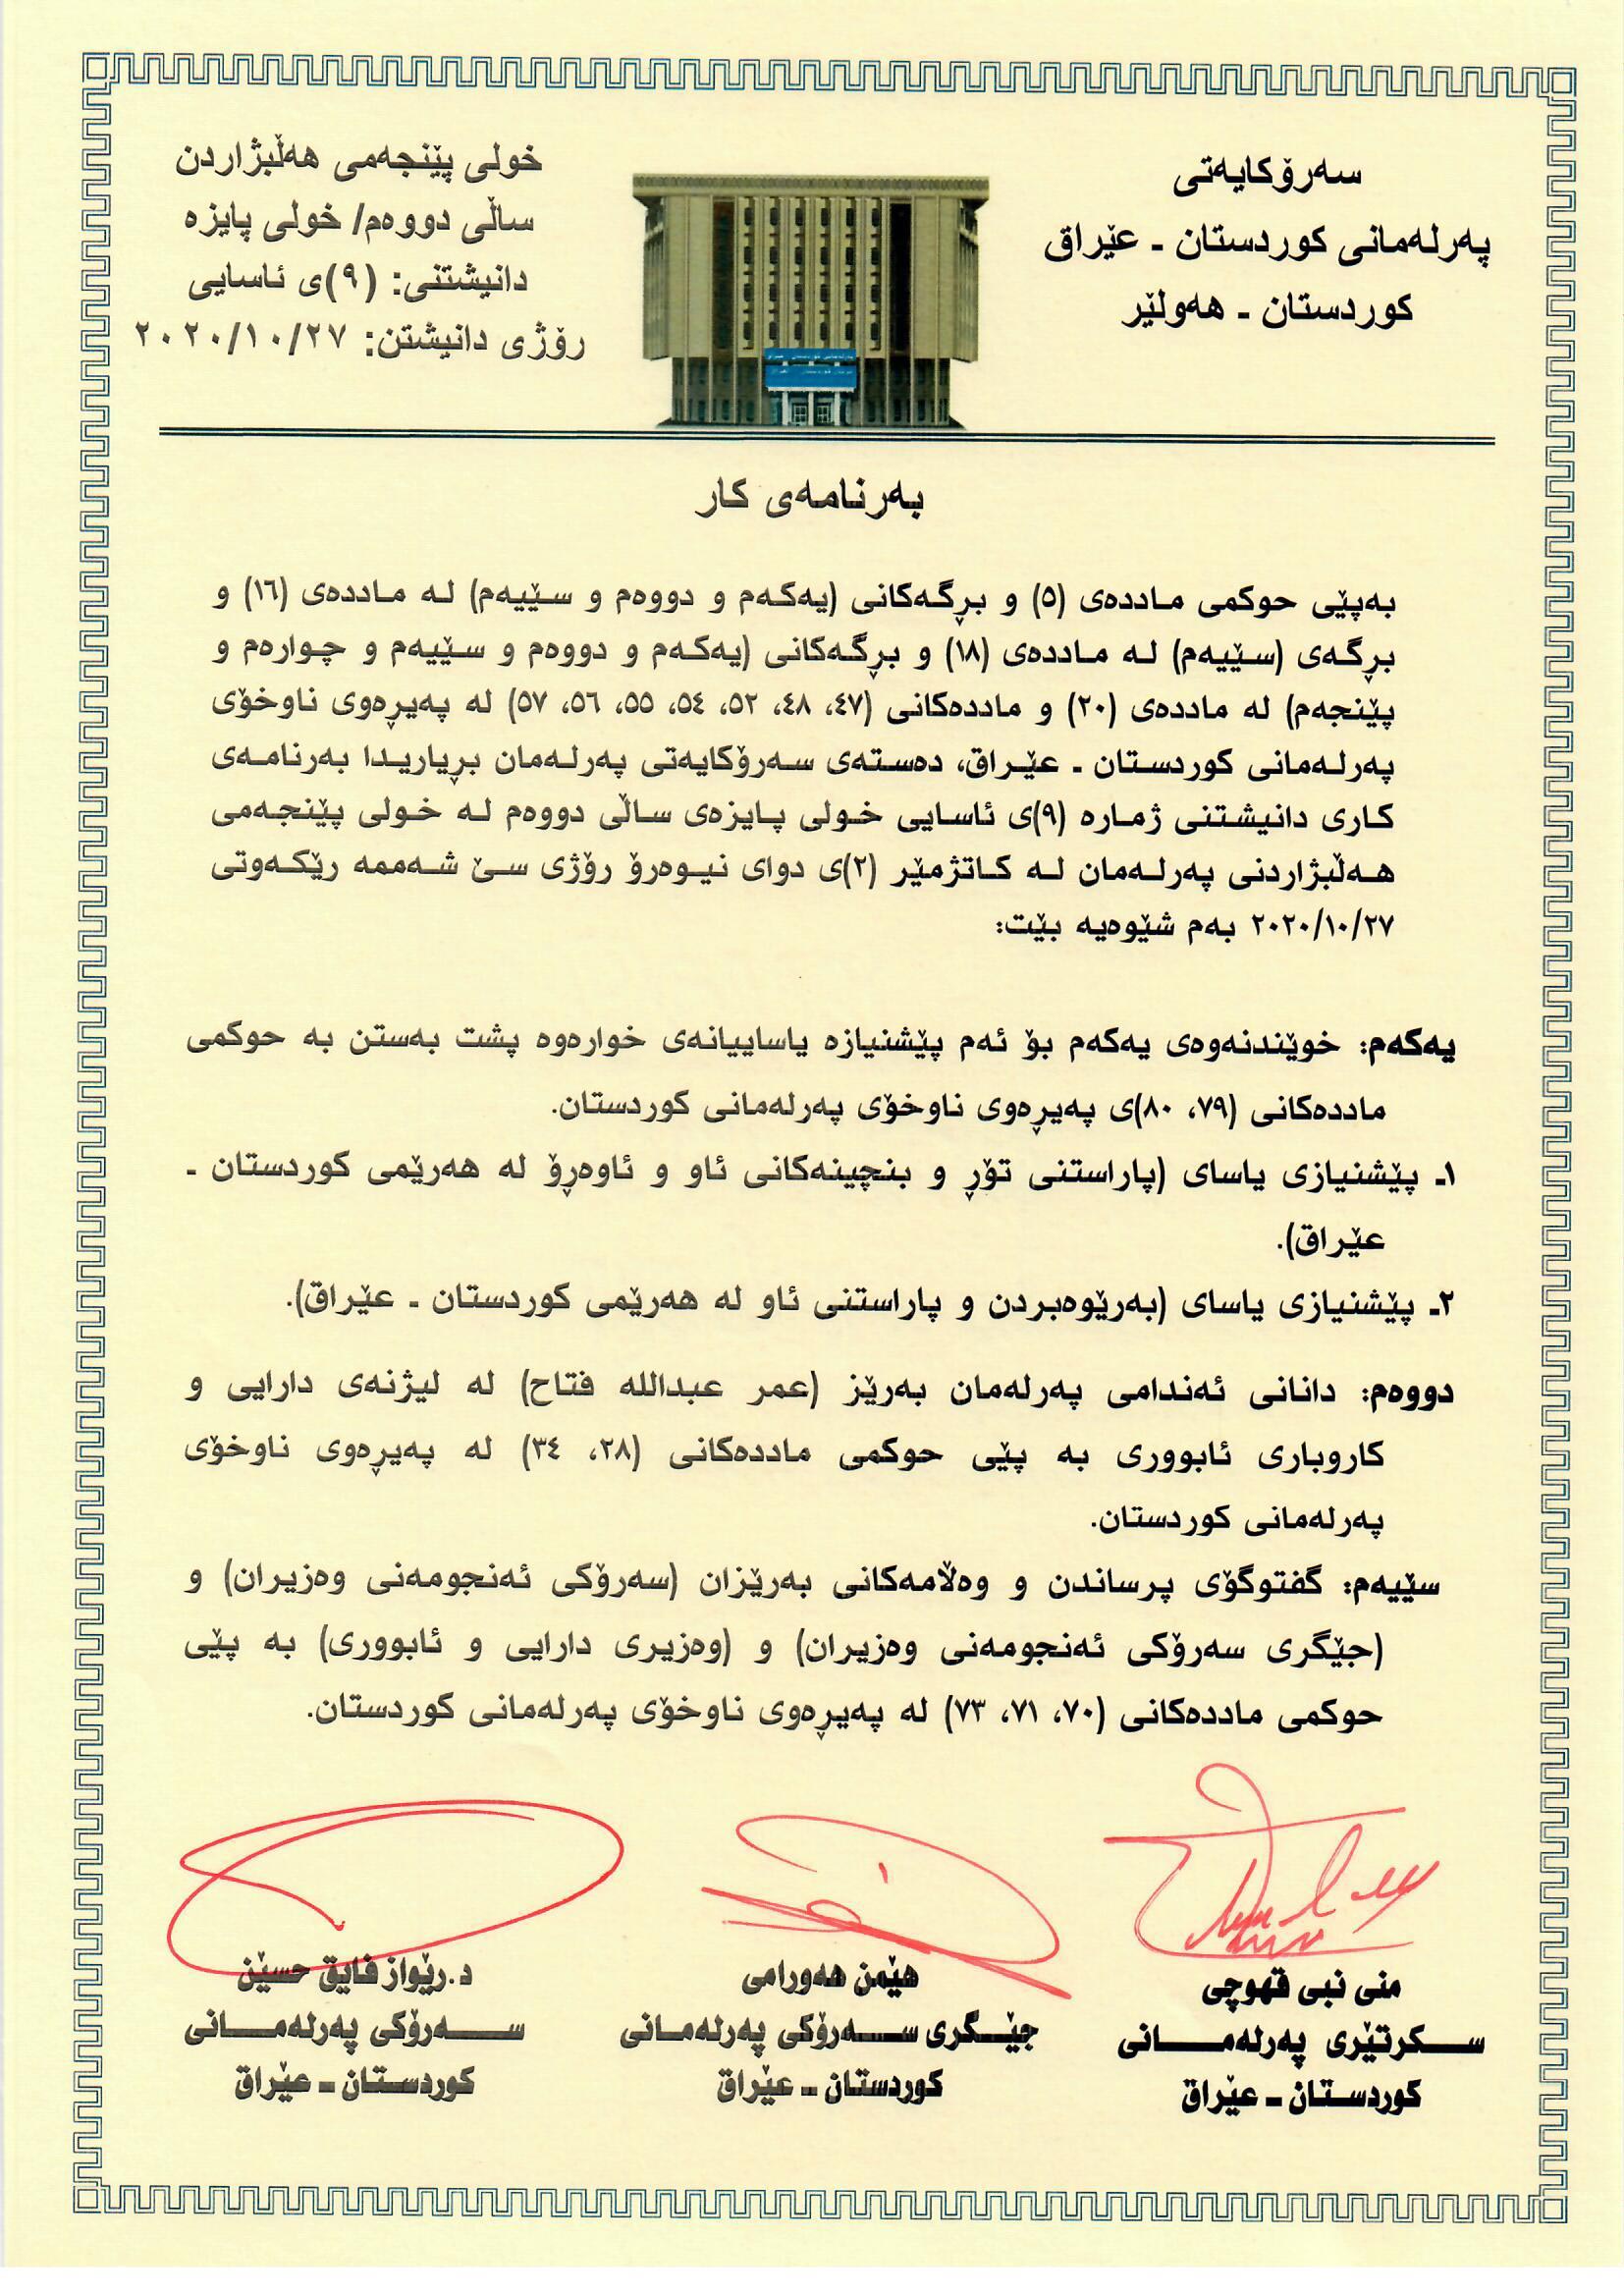 سەرۆکایەتی
پەرلەمانی کوردستان ـ عێراق
کوردستان ـ هەولێر
خولی پێنجەمی هەڵبژاردن
ساڵی دووەم/ خولی پایزە
دانیشتنی: (٩)ی ئاسایی
رۆژی دانیشتن: ٢٠٢٠/١٠/٢٧
بەرنامەی کار
بەپێی حوکمی ماددەی (٥) و بڕگەکانی (یەکەم و دووەم و سێیەم) لە ماددەی (١٦) و
بڕگەی (سێیەم) لە ماددەی (١٨) و بڕگەکانی (یەکەم و دووەم و سێیەم و چوارەم و
پێنجەم) لە ماددەی (٢٠) و ماددەکانی (٤٧، ٤٨، ٥٢، ٥٤، ٥٥، ٥٦، ٥٧) لە پەیڕەوی ناوخۆی
پەرلەمانی کوردستان ـ عێراق، دەستەی سەرۆکایەتی پەرلەمان بڕیاریدا بەرنامەی
کاری دانیشتنی ژمارە (٩)ی ئاسایی خولی پایزەی ساڵی دووەم لە خولی پێنجەمی
هەڵبژاردنی پەرلەمان لە کاتژمێر (٢)ی دوای نیوەرۆ رۆژی سێ شەممە رێکەوتی
٢٠٢٠/١٠/٢٧ بەم شێوەیە بێت:
یەکەم: خوێندنەوەی یەکەم بۆ ئەم پێشنیازە یاساییانەی خوارەوە پشت بەستن بە حوکمی
ماددەکانی (٧٩، ٨٠)ی پەیڕەوی ناوخۆی پەرلەمانی کوردستان.
١ـ پێشنیازی یاسای (پاراستنی تۆڕ و بنچینەکانی ئاو و ئاوەڕۆ لە هەرێمی کوردستان ـ
عێراق).
٢ـ پێشنیازی یاسای (بەرێوەبردن و پاراستنی ئاو لە هەرێمی کوردستان ـ عێراق).
دووەم: دانانی ئەندامی پەرلەمان بەرێز (عمر عبدالله فتاح) لە لیژنەی دارایی و
کاروباری ئابووری بە پێی حوکمی ماددەکانی (٢٨، ٣٤) لە پەیڕەوی ناوخۆی
پەرلەمانی کوردستان.
سێیەم: گفتوگۆی پرساندن و وەڵامەکانی بەرێزان (سەرۆکی ئەنجومەنی وەزیران) و
(جێگری سەرۆکی ئەنجومەنی وەزیران) و (وەزیری دارایی و ئابووری) بە پێی
حوکمی ماددەکانی (٧٠، ٧١، ٧٣) لە پەیڕەوی ناوخۆی پەرلەمانی کوردستان.
منی نبی قهوچی
سکرتێری پەرلەمانی
کوردستان ـ عێراق
هێمن هەورامی
جێگری سەرۆکی پەرلەمانی
کوردستان ـ عێراق
د.رێواز فایق حسێن
سەرۆکی پەرلەمانی
کوردستان ـ عێراق